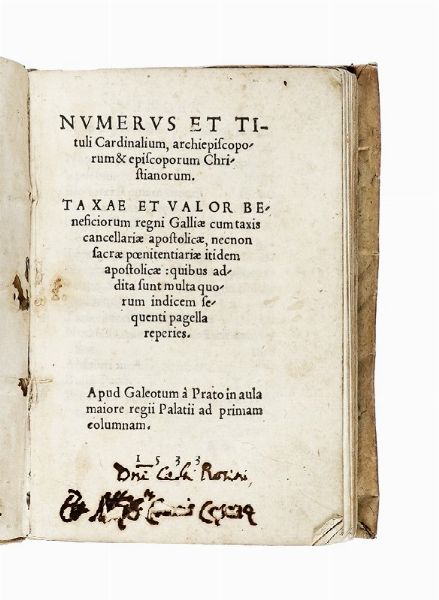 NVMERVS ET TI-
tuli Cardinalium, archiepiſcopo-
rum & epiſcoporum Chri-
ſtianorum.
TAXAE ET VALOR BE-
neficiorum regni Galliæ cum taxis
cancellariæ apoſtolicæ, necnon
ſacræ pœnitentiariæ itidem
apoſtolicæ : quibus ad-
dita ſunt multa quo-
rum indicem ſe-
quenti pagella
reperies.
Apud Galeotum â Prato in aula
maiore regii Palatii ad primam
columnam.
1533